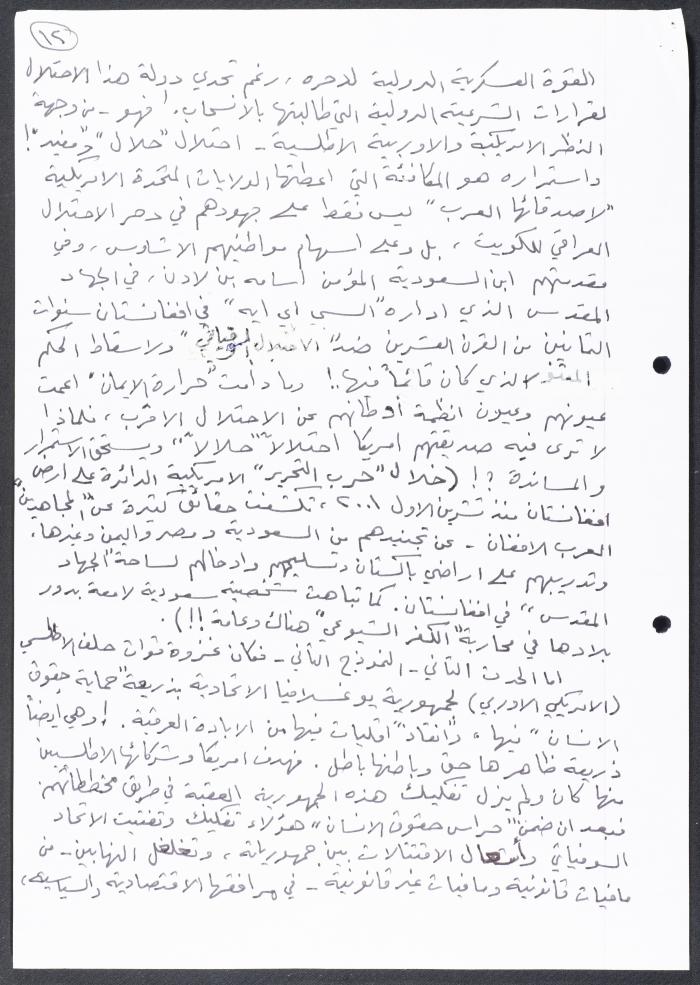 ١٢
القوة العسكرية الدولية لدحره، رغم تحدي دولة هذا الاحتلال
لقرارات الشرعية الدولية التي طالبتها بالانسحاب. فهو - من وجهة
النظر الامريكية والاوربية الاطلسية - احتلال "حلال" و"مفيد"!
واستمراره هو المكافئة التي اعطتها الولايات المتحدة الامريكية
"لاصدقائها العرب" ليس فقط على جهودهم في دحر الاحتلال
العراقي للكويت، بل وعلى اسهام مواطنيهم الاشاوس، وفي
مقدمتهم ابن السعودية المؤمن اسامه بن لادن، في الجهاد
المقدس الذي اداره "السي اي ايه" في افغانستان سنوات
الثمانين من القرن العشرين ضد "الاحتلال السوفياتي" ولاسقاط الحكم
الذي كان قائماً فيها..! وما دامت "حرارة الايمان" اعمت
عيونهم وعيون انظمة أوطانهم عن الاحتلال الاقرب، فلماذا
لا ترى فيه صديقتهم امريكا احتلالاً "حلالاً"، ويستحق الاستمرار
والمساندة؟! (خلال "حرب التحرير" الامريكية الدائرة على ارض
افغانستان منذ تشرين الاول ٢٠٠١، تكشفت حقائق كثيرة عن "المجاهدين"
العرب الافغان - عن تجنيدهم من السعودية ومصر واليمن وغيرها،
وتدريبهم على اراضي باكستان وتسليحهم وادخالهم لساحة "الجهاد
المقدس" في افغانستان. كما تباهت شخصية سعودية لامعة بدور
بلادها في محاربة "الكفر الشيوعي" هناك وعامة!!).
اما الحدث الثاني - النموذج الثاني - فكان غزوة قوات حلف الاطلسي
(الامريكي الاوربي) لجمهورية يوغسلافيا الاتحادية بذريعة "حماية حقوق
الانسان" فيها، و"انقاذ" اقليات فيها من الابادة العرقية. وهي ايضاً
ذريعة ظاهرها حق وباطنها باطل. فهدف امريكا وشركائها الاطلسيين
منها كان ولم يزل تفكيك هذه الجمهورية العقبة في طريق مخططاتهم.
فبعد ان ضمن "حراس حقوق الانسان" هؤلاء تفكيك وتفتيت الاتحاد
السوفياتي وأشعال الاقتتالات بين جمهورياته، وتغلغل النهابين - من
مافيات قانونية ومافيات غير قانونية - في مرافقها الاقتصادية والسياسية،